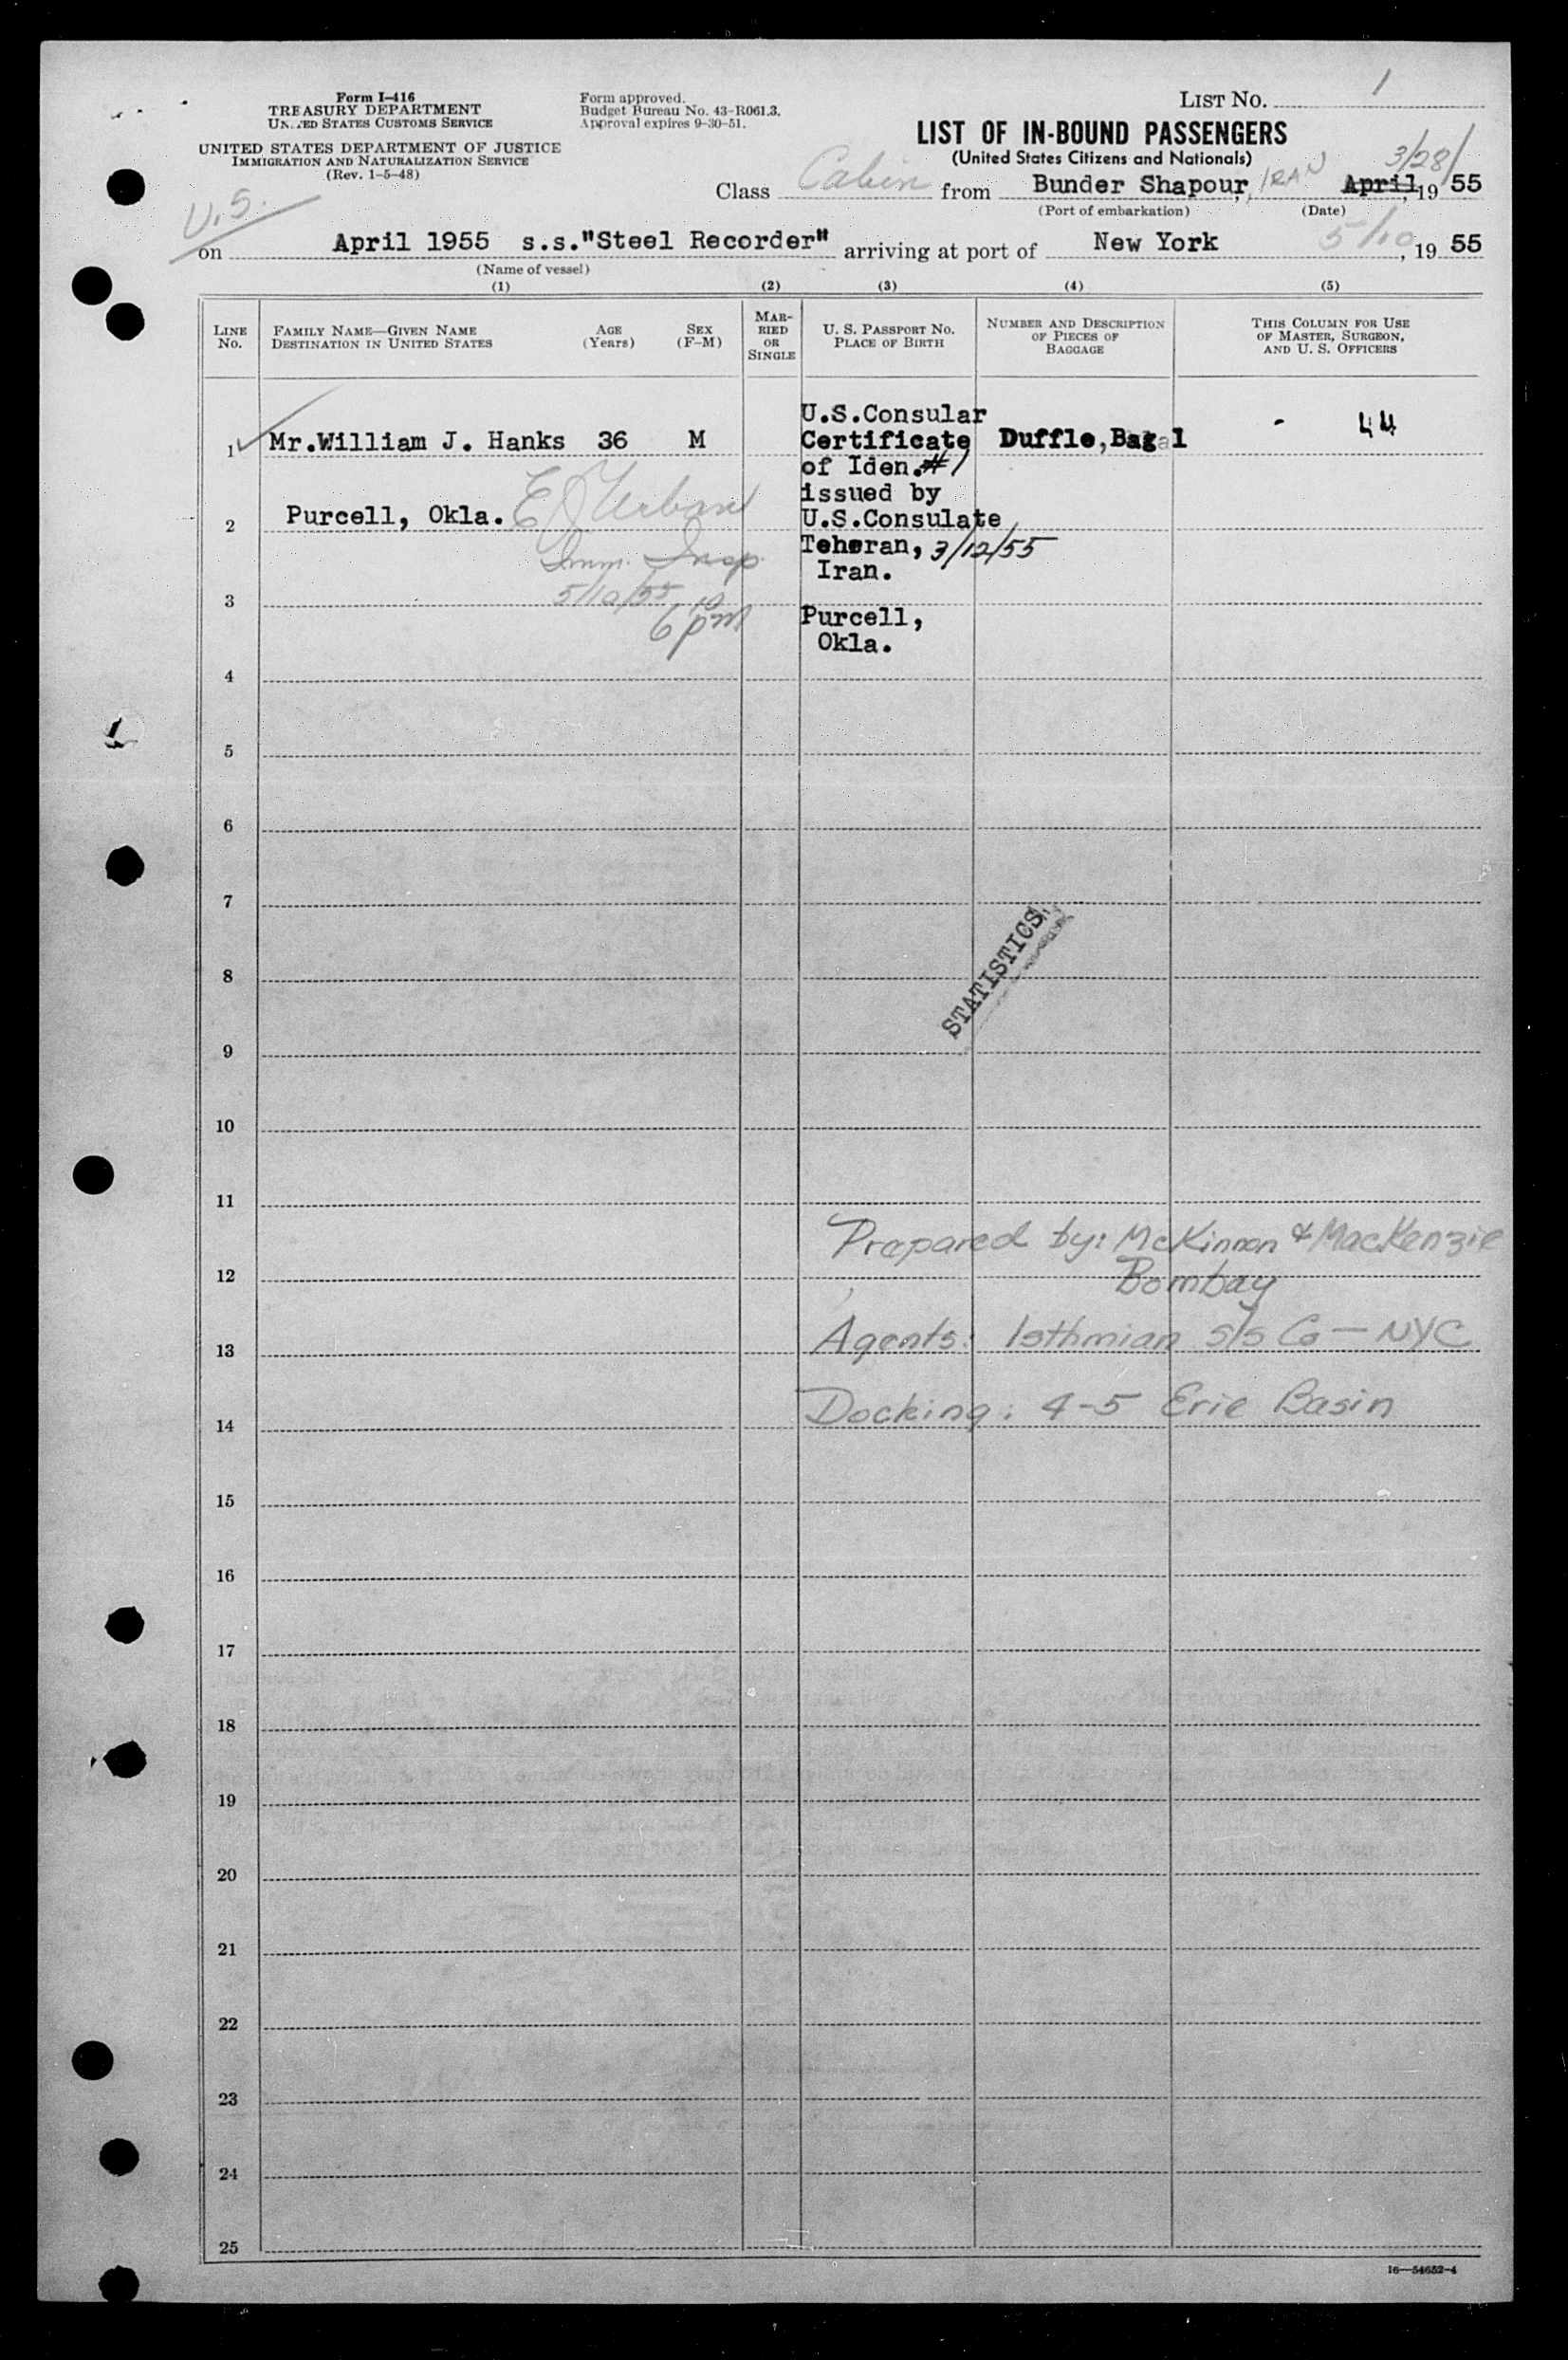 Form I-416
TREASURY DEPARTMENT
UNITED STATES CUSTOMS SERVICE
UNITED STATES DEPARTMENT OF JUSTICE
IMMIGRATION AND NATURALIZATION SERVICE
(Rev. 1-5-48)
Form approved.
Budget Bureau No. 43-R061.3.
Approval expires 9-30-51.
LIST NO. 1
LIST OF IN-BOUND PASSENGERS
(United States Citizens and Nationals)
U.S.
Class Cabin from Bunder Shapour, IRAN April 3/28/ 1955
(Port of embarkation) (Date)
on April 1955 s.s."Steel Recorder" arriving at port of New York 5/10, 1955
(Name of vessel)
(1) (2) (3) (4) (5)
LINE NO.
FAMILY NAME—GIVEN NAME
DESTINATION IN UNITED STATES
AGE (Years)
SEX (F-M)
MARRIED OR SINGLE
U. S. PASSPORT NO.
PLACE OF BIRTH
NUMBER AND DESCRIPTION
OF PIECES OF
BAGGAGE
THIS COLUMN FOR USE
OF MASTER, SURGEON,
AND U. S. OFFICERS
1 Mr.William J. Hanks 36 M
U.S.Consular
Certificate
of Iden.#1
issued by
U.S.Consulate,
Teheran, 3/12/55
Iran.
Purcell,
Okla.
Duffle,Bag 1
- 44
2 Purcell, Okla.
E J Urban
Imm. Insp.
5/10/55
6 10 pm
3
4
5
6
7
STATISTICS
8
9
10
11
Prepared by: McKinnon & MacKenzie
12 Bombay
13 Agents: Isthmian S/S Co — NYC
14 Docking: 4-5 Erie Basin
15
16
17
18
19
20
21
22
23
24
25
16—54652-4